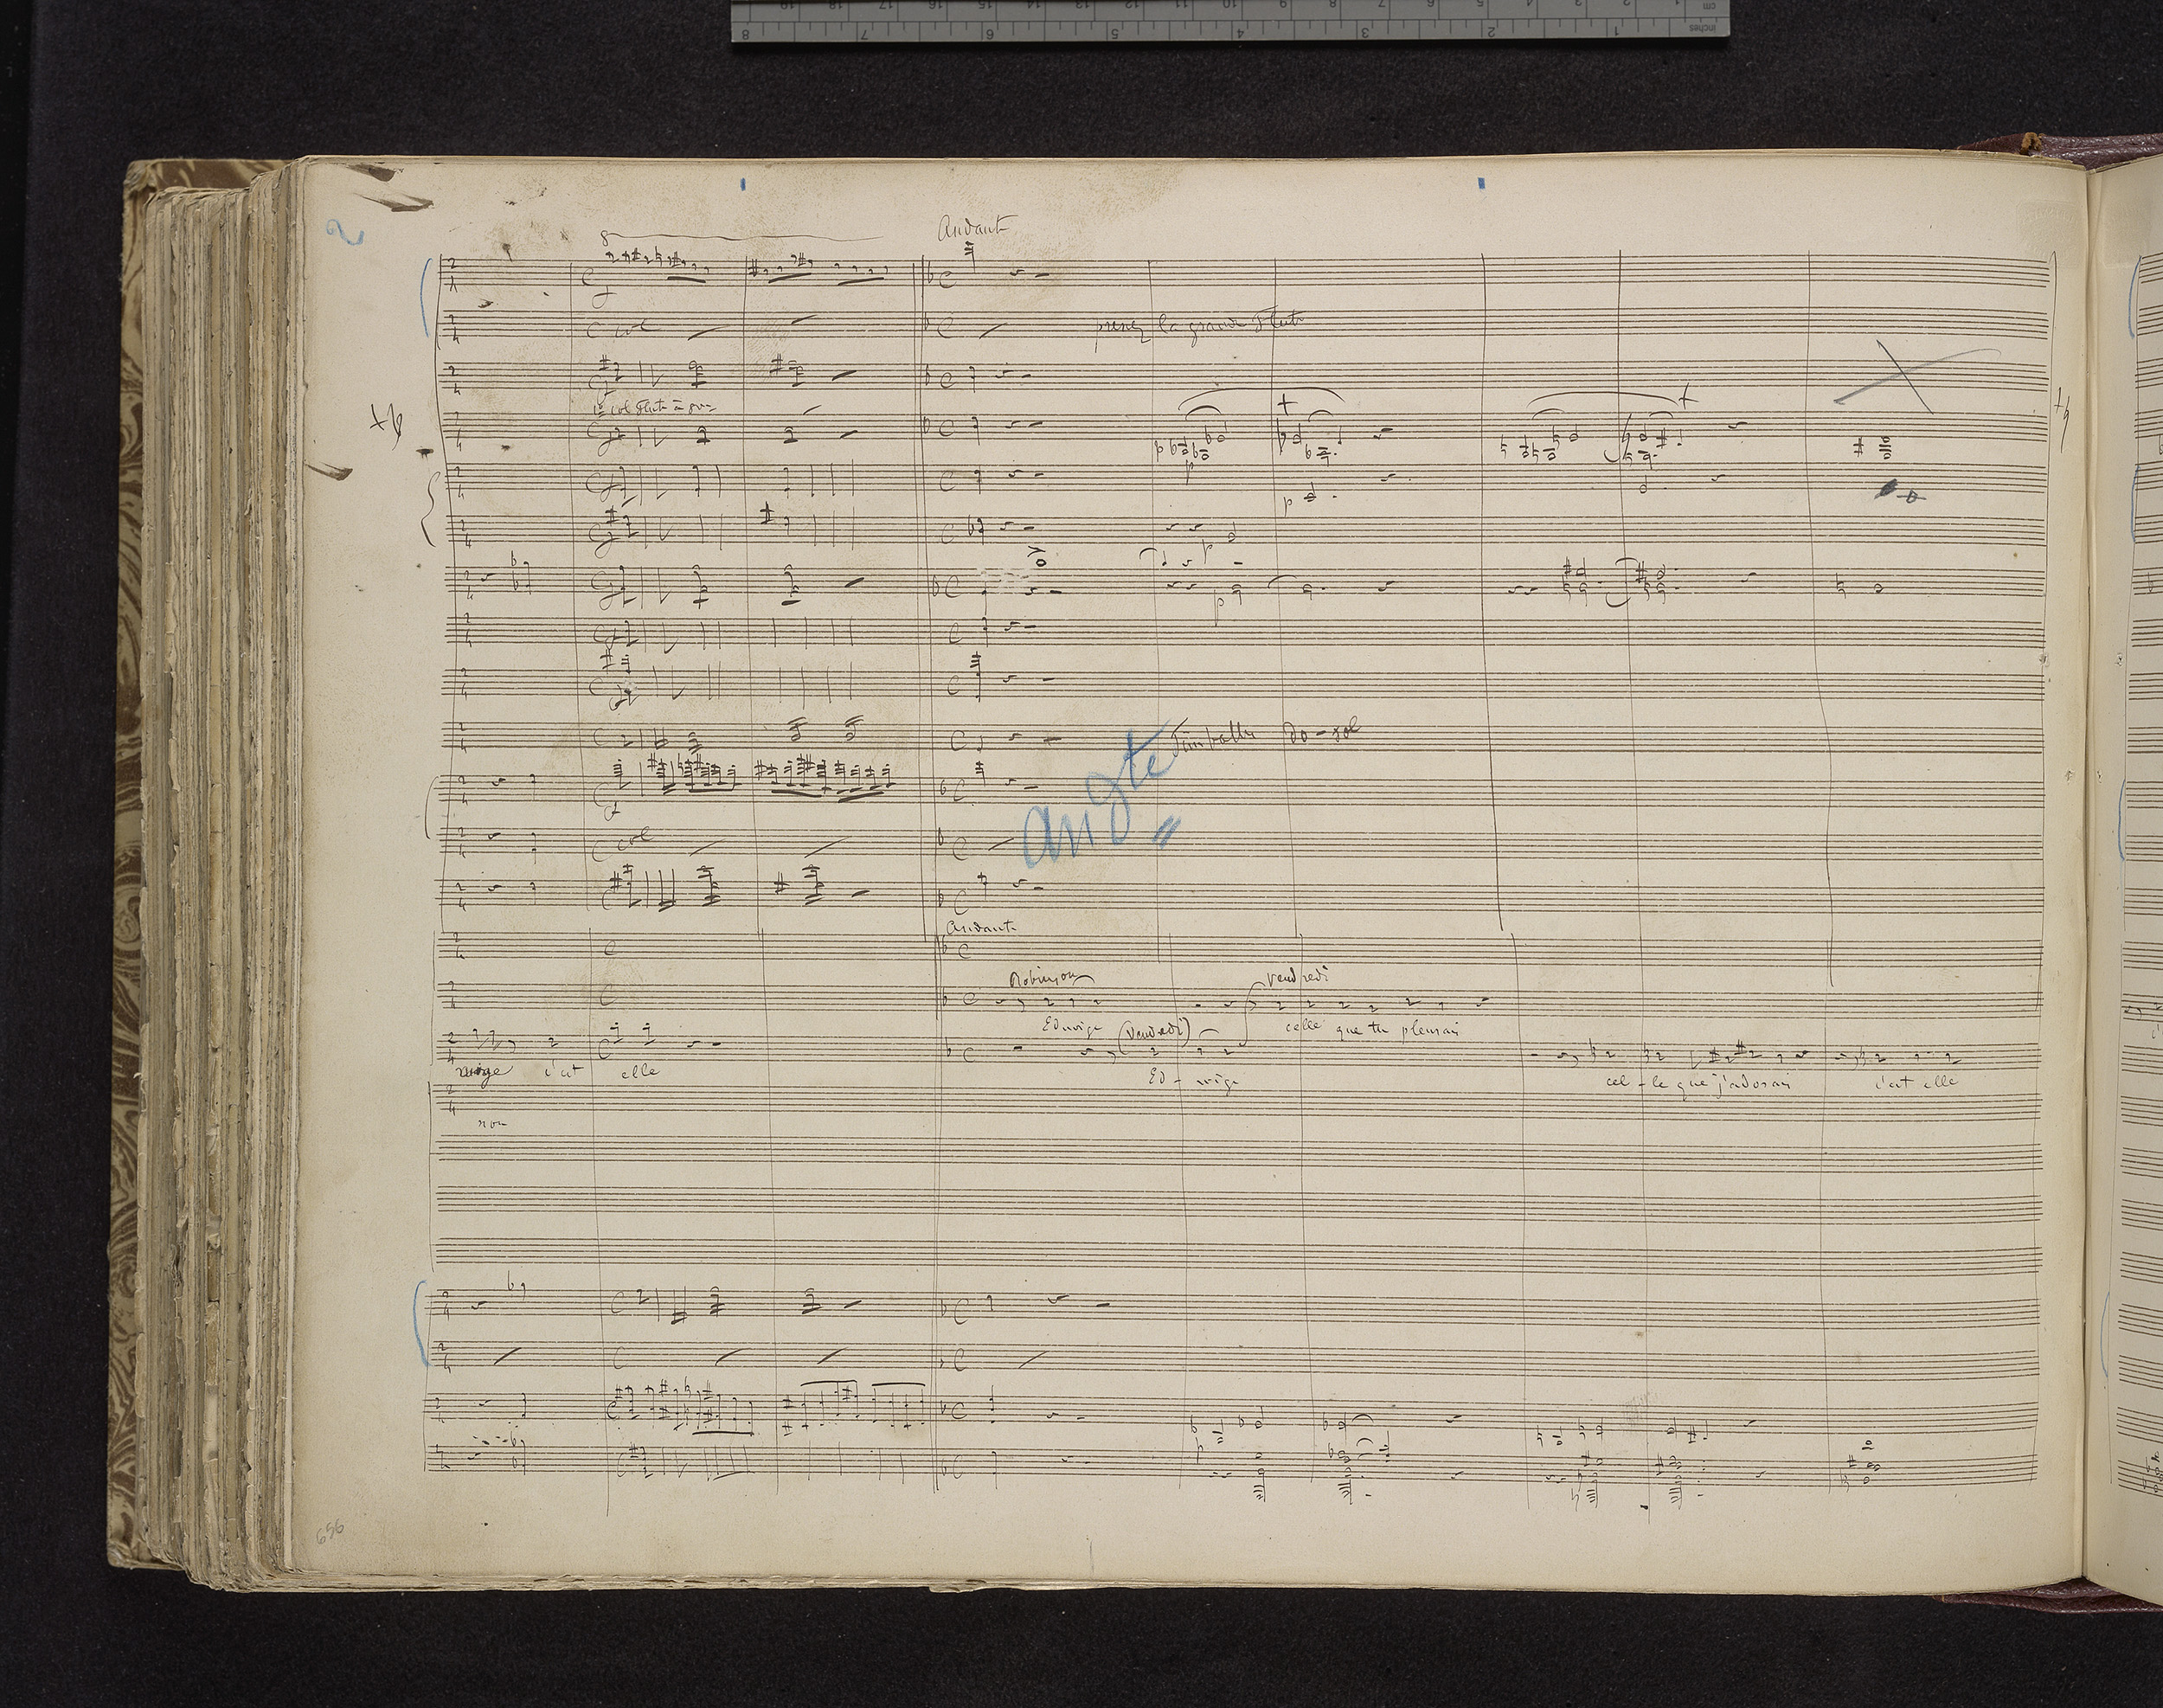 cm 1 2 3 4 5 6 7 8 9 10 11 12 13 14 15 16 17 18 19
inches 1 2 3 4 5 6 7 8
2
8
Andante
col
prenez la grande Flute
Timballes do - sol
andte
col
Andante
Robinson
vendredi
Edwige
(vendredi)
celle que tu pleurais
wige c'est elle
Ed - wige
cel - le que j'adorais
c'est elle
non
656